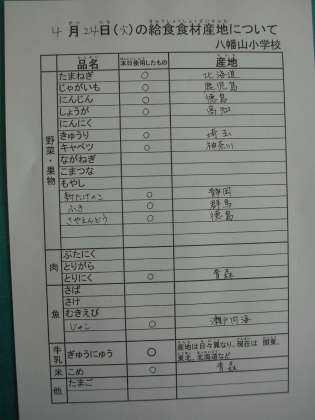 4月24日(火)の給食食材産地について
八幡山小学校
品名 本日使用したもの 産地
野菜・果物
たまねぎ ○ 北海道
じゃがいも ○ 鹿児島
にんじん ○ 徳島
しょうが ○ 高知
にんにく
きゅうり ○ 埼玉
キャベツ ○ 神奈川
ながねぎ
こまつな
もやし
新たけのこ ○ 静岡
ふき ○ 群馬
さやえんどう ○ 徳島
肉
ぶたにく
とりがら
とりにく ○ 青森
魚
さば
さけ
むきえび
じゃこ ○ 瀬戸内海
牛乳 ぎゅうにゅう ○ 産地は日々異なり、現在は 関東、
東北、北海道など
米 こめ ○ 青森
他 たまご